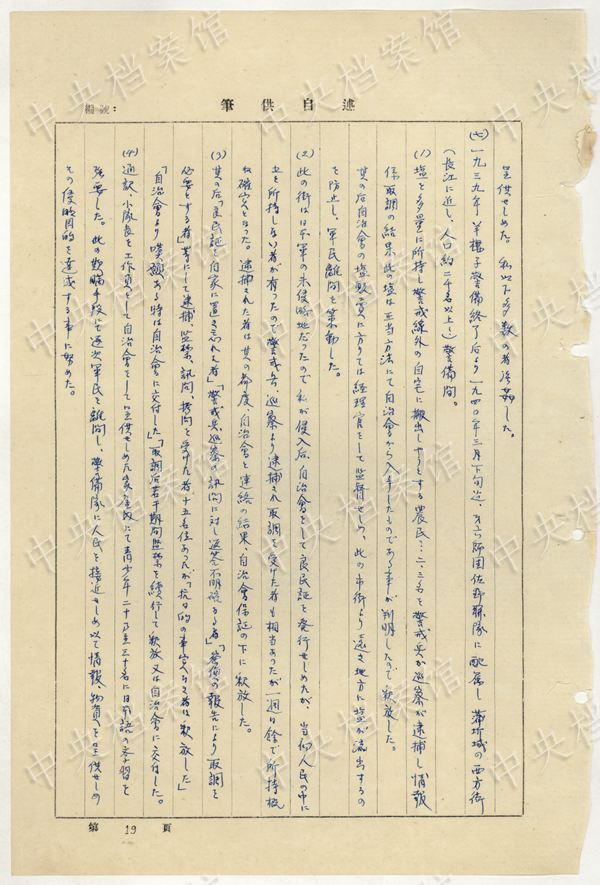 編號：
筆供自述
呈供せしめた。私以下多数の者強姦した。
(七) 一九三九年 羊樓子警備終了后より一九四〇年三月下旬迄、第六師団佐野部隊に配属し 蒲圻城の西方街
(長江に近し、人口約二千名以上)警備間。
(1) 塩を多量に所持し警戒線外の自宅に搬出しやうとする農民 二、三名を警戒兵が巡察が逮捕し情報
係取調の結果、此の塩は正当方法にて自治會から入手したものである事が判明したので釈放した。
其の后自治會の塩販賣に方りては経理官をして監督せしめ、此の市街より遠き地方に塩が流出するの
を防止し、軍民離間を策動した。
(2) 此の街は日本軍の未侵略地だったので私が侵入后、自治會をして良民証を発行せしめたが、当初人民の中に
之を所持しない者が有ったので警戒兵、巡察より逮捕され取調を受けた者も相当あったが一週日餘で所持概
ね確実となった。逮捕された者は其の都度、自治會と連絡の結果、自治會保証の下に釈放した。
(3) 其の后「良民証を自家に置き忘れた者」「警戒兵巡察の訊問に対し返答不明確なる者」「密偵の報告により取調を
必要とする者」等にして逮捕、監禁、訊問、拷問を受けた者十五名位あったが「抗日的の事実なき者は釈放した」
「自治會より嘆願ある時は自治會に交付した」「取調后若干期間監禁を続行して釈放又は自治會に交付した。
(4) 通訳、小隊長を工作員として自治會をして呈供せしめた家屋にて青少年二十乃至三十名に日本語の学習を
強要した。此の欺瞞手段にて逐次軍民を離間し、警備隊に人民を接近せしめ以て情報、物資を呈供せしめ
その侵略目的を達成する事に努めた。
第 19 頁
中央档案馆